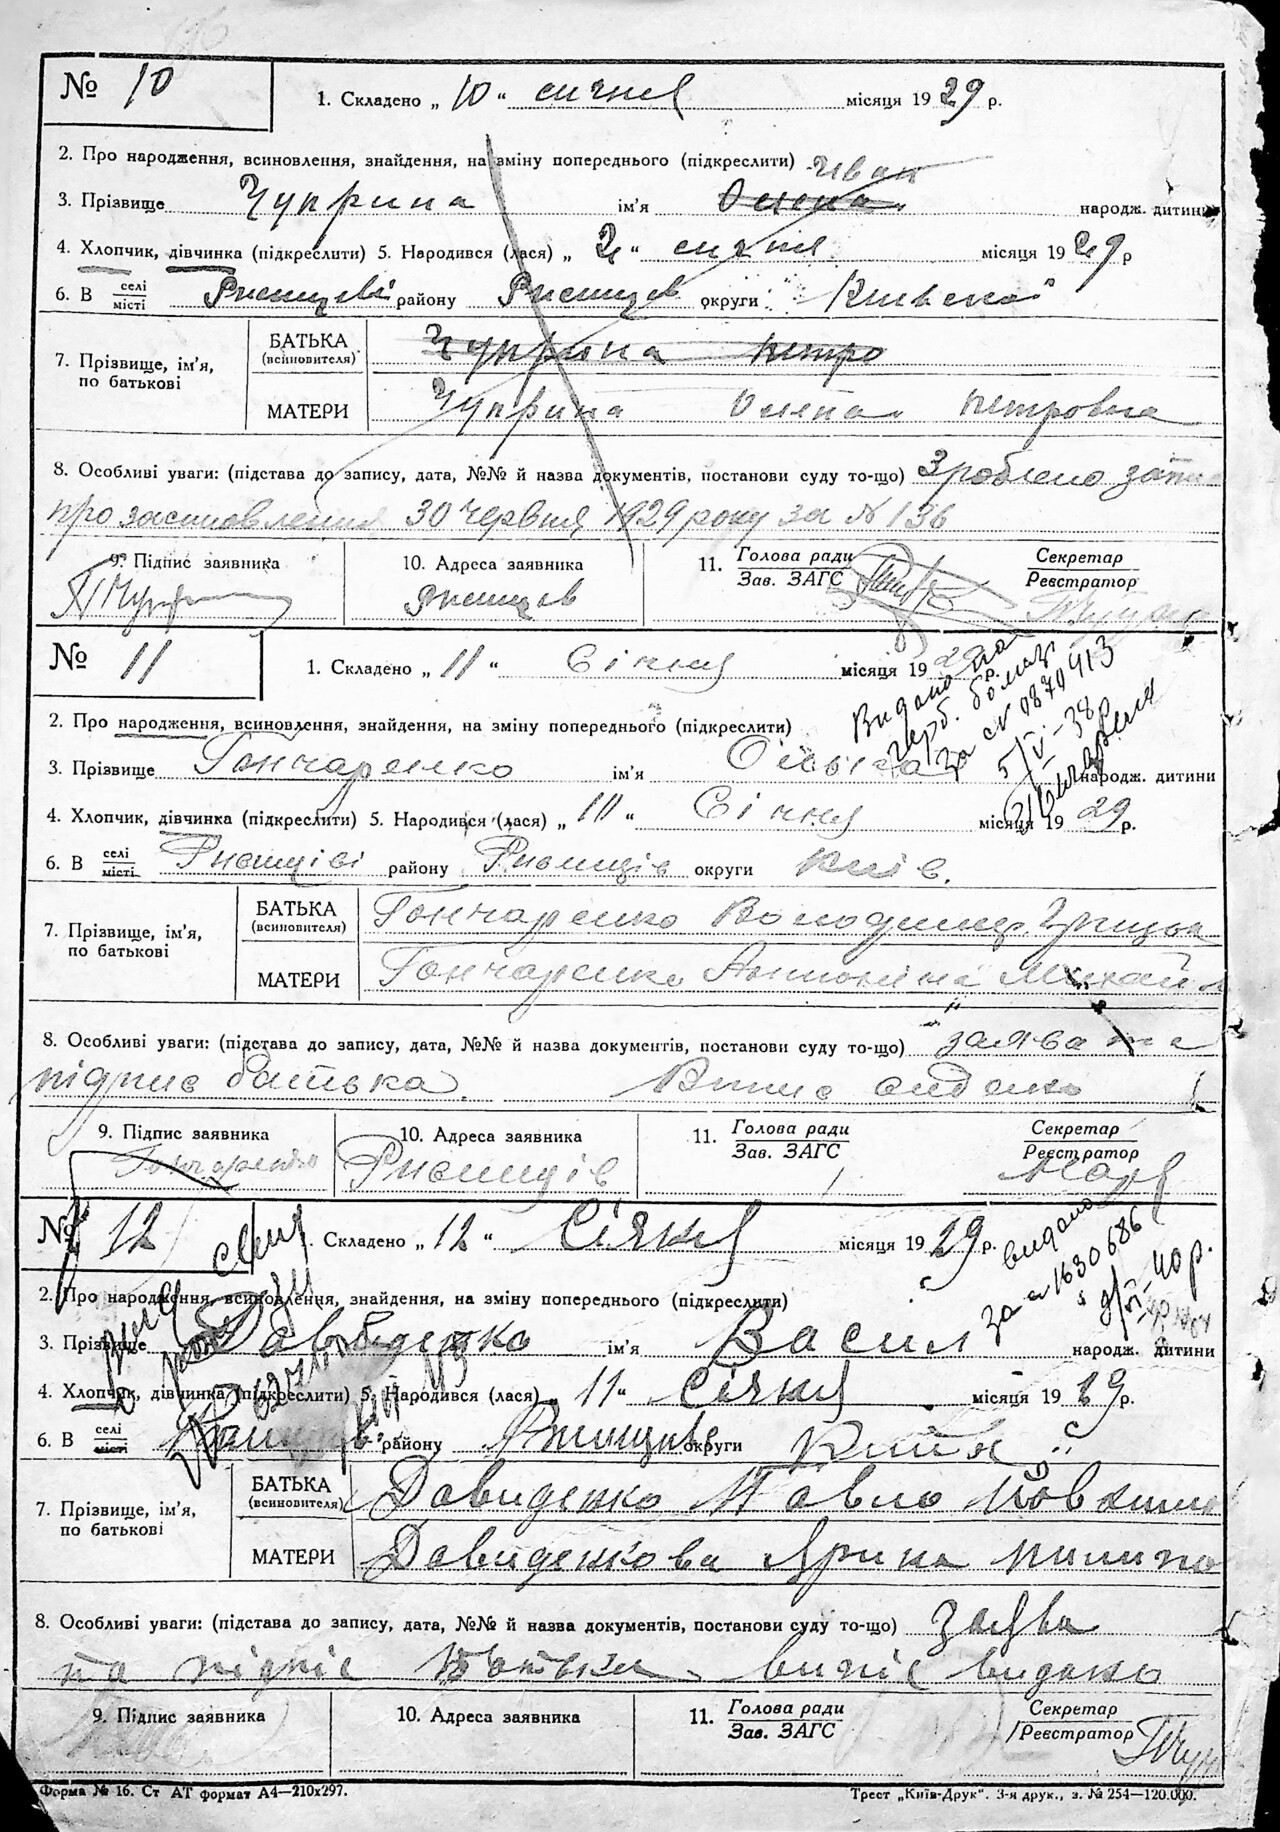 № 10
1. Складено „ 10 “ сичня місяця 1929 р.
2. Про народження, всиновлення, знайдення, на зміну попереднього (підкреслити) Иван
3. Прізвище Чуприна ім'я Олена народж. дитини
4. Хлопчик, дівчинка (підкреслити) 5. Народився (лася) „ 2 “ сичня місяця 1929 р
6. В селі місті Ржищеві району Ржищев округи Киівскоі
7. Прізвище, ім'я, по батькові
БАТЬКА (всиновителя) Чуприна Петро
МАТЕРИ Чуприна Олена Петровна
8. Особливі уваги: (підстава до запису, дата, №№ й назва документів, постанови суду то-що) Зроблено запис
про застановлення 30 червня 1929 року за № 136
9. Підпис заявника 10. Адреса заявника 11. Голова ради Секретар
Зав. ЗАГС Реєстратор
Ржищев
№ 11
1. Складено „ 11 “ Січня місяця 1929 р.
Видано по
герб. бомазі
за № 0879413
5/IV-38р
2. Про народження, всиновлення, знайдення, на зміну попереднього (підкреслити)
3. Прізвище Гончаренко ім'я Ольга народж. дитини
4. Хлопчик, дівчинка (підкреслити) 5. Народився (лася) „ 11 “ Січня місяця 1929 р.
6. В селі місті Ржищіві району Ржищів округи Київ.
7. Прізвище, ім'я, по батькові
БАТЬКА (всиновителя) Гончаренко Володимир Грицьк
МАТЕРИ Гончаренко Антоніна Михайл
8. Особливі уваги: (підстава до запису, дата, №№ й назва документів, постанови суду то-що) заява та
підпис батька. Випис видано
9. Підпис заявника 10. Адреса заявника 11. Голова ради Секретар
Зав. ЗАГС Реєстратор
Гончаренко Ржищів
№ 12
1. Складено „ 12 “ Січня місяця 1929 р.
видано
за № 1630686
2. Про народження, всиновлення, знайдення, на зміну попереднього (підкреслити)
3. Прізвище Давиденко ім'я Васил народж. дитини
4. Хлопчик, дівчинка (підкреслити) 5. Народився (лася) „ 11 “ Січня місяця 1929 р.
6. В селі місті району Ржищів округи
7. Прізвище, ім'я, по батькові
БАТЬКА (всиновителя) Давиденко Павло Йовхим
МАТЕРИ Давиденкова Ярина Пилипо
8. Особливі уваги: (підстава до запису, дата, №№ й назва документів, постанови суду то-що) Заява
та підпіс батька випіс видано
9. Підпис заявника 10. Адреса заявника 11. Голова ради Секретар
Зав. ЗАГС Реєстратор
Форма № 16. Ст АТ формат А4—210х297.
Трест „Київ-Друк“. 3-я друк., з. № 254—120.000.